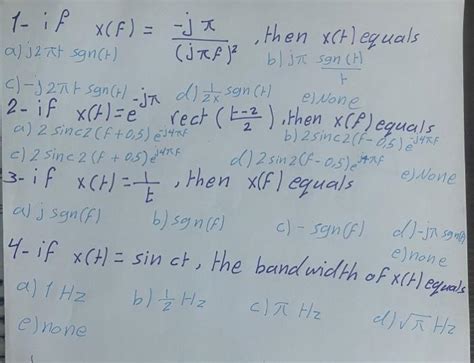 1- if x(f) = -jπ / (jπf)², then x(t) equals
a) j2πt sgn(t) b) jπ sgn(t)/t
c) -j2πt sgn(t) d) 1/2x sgn(t) e) None
2- if x(t) = e^-jπ rect (t-2/2), then x(f) equals
a) 2 sinc2(f+0,5) e^j4πf b) 2 sinc2(f-0,5) e^j4πf
c) 2 sinc2(f+0,5) e^j4πf d) 2 sin2(f-0,5) e^j4πf e) None
3- if x(t) = 1/t, then x(f) equals
a) j sgn(f) b) sgn(f) c) - sgn(f) d) -jπ sgn(f)
e) none
4- if x(t) = sin ct, the bandwidth of x(t) equals
a) 1 Hz b) 1/2 Hz c) π Hz d) √π Hz
e) none